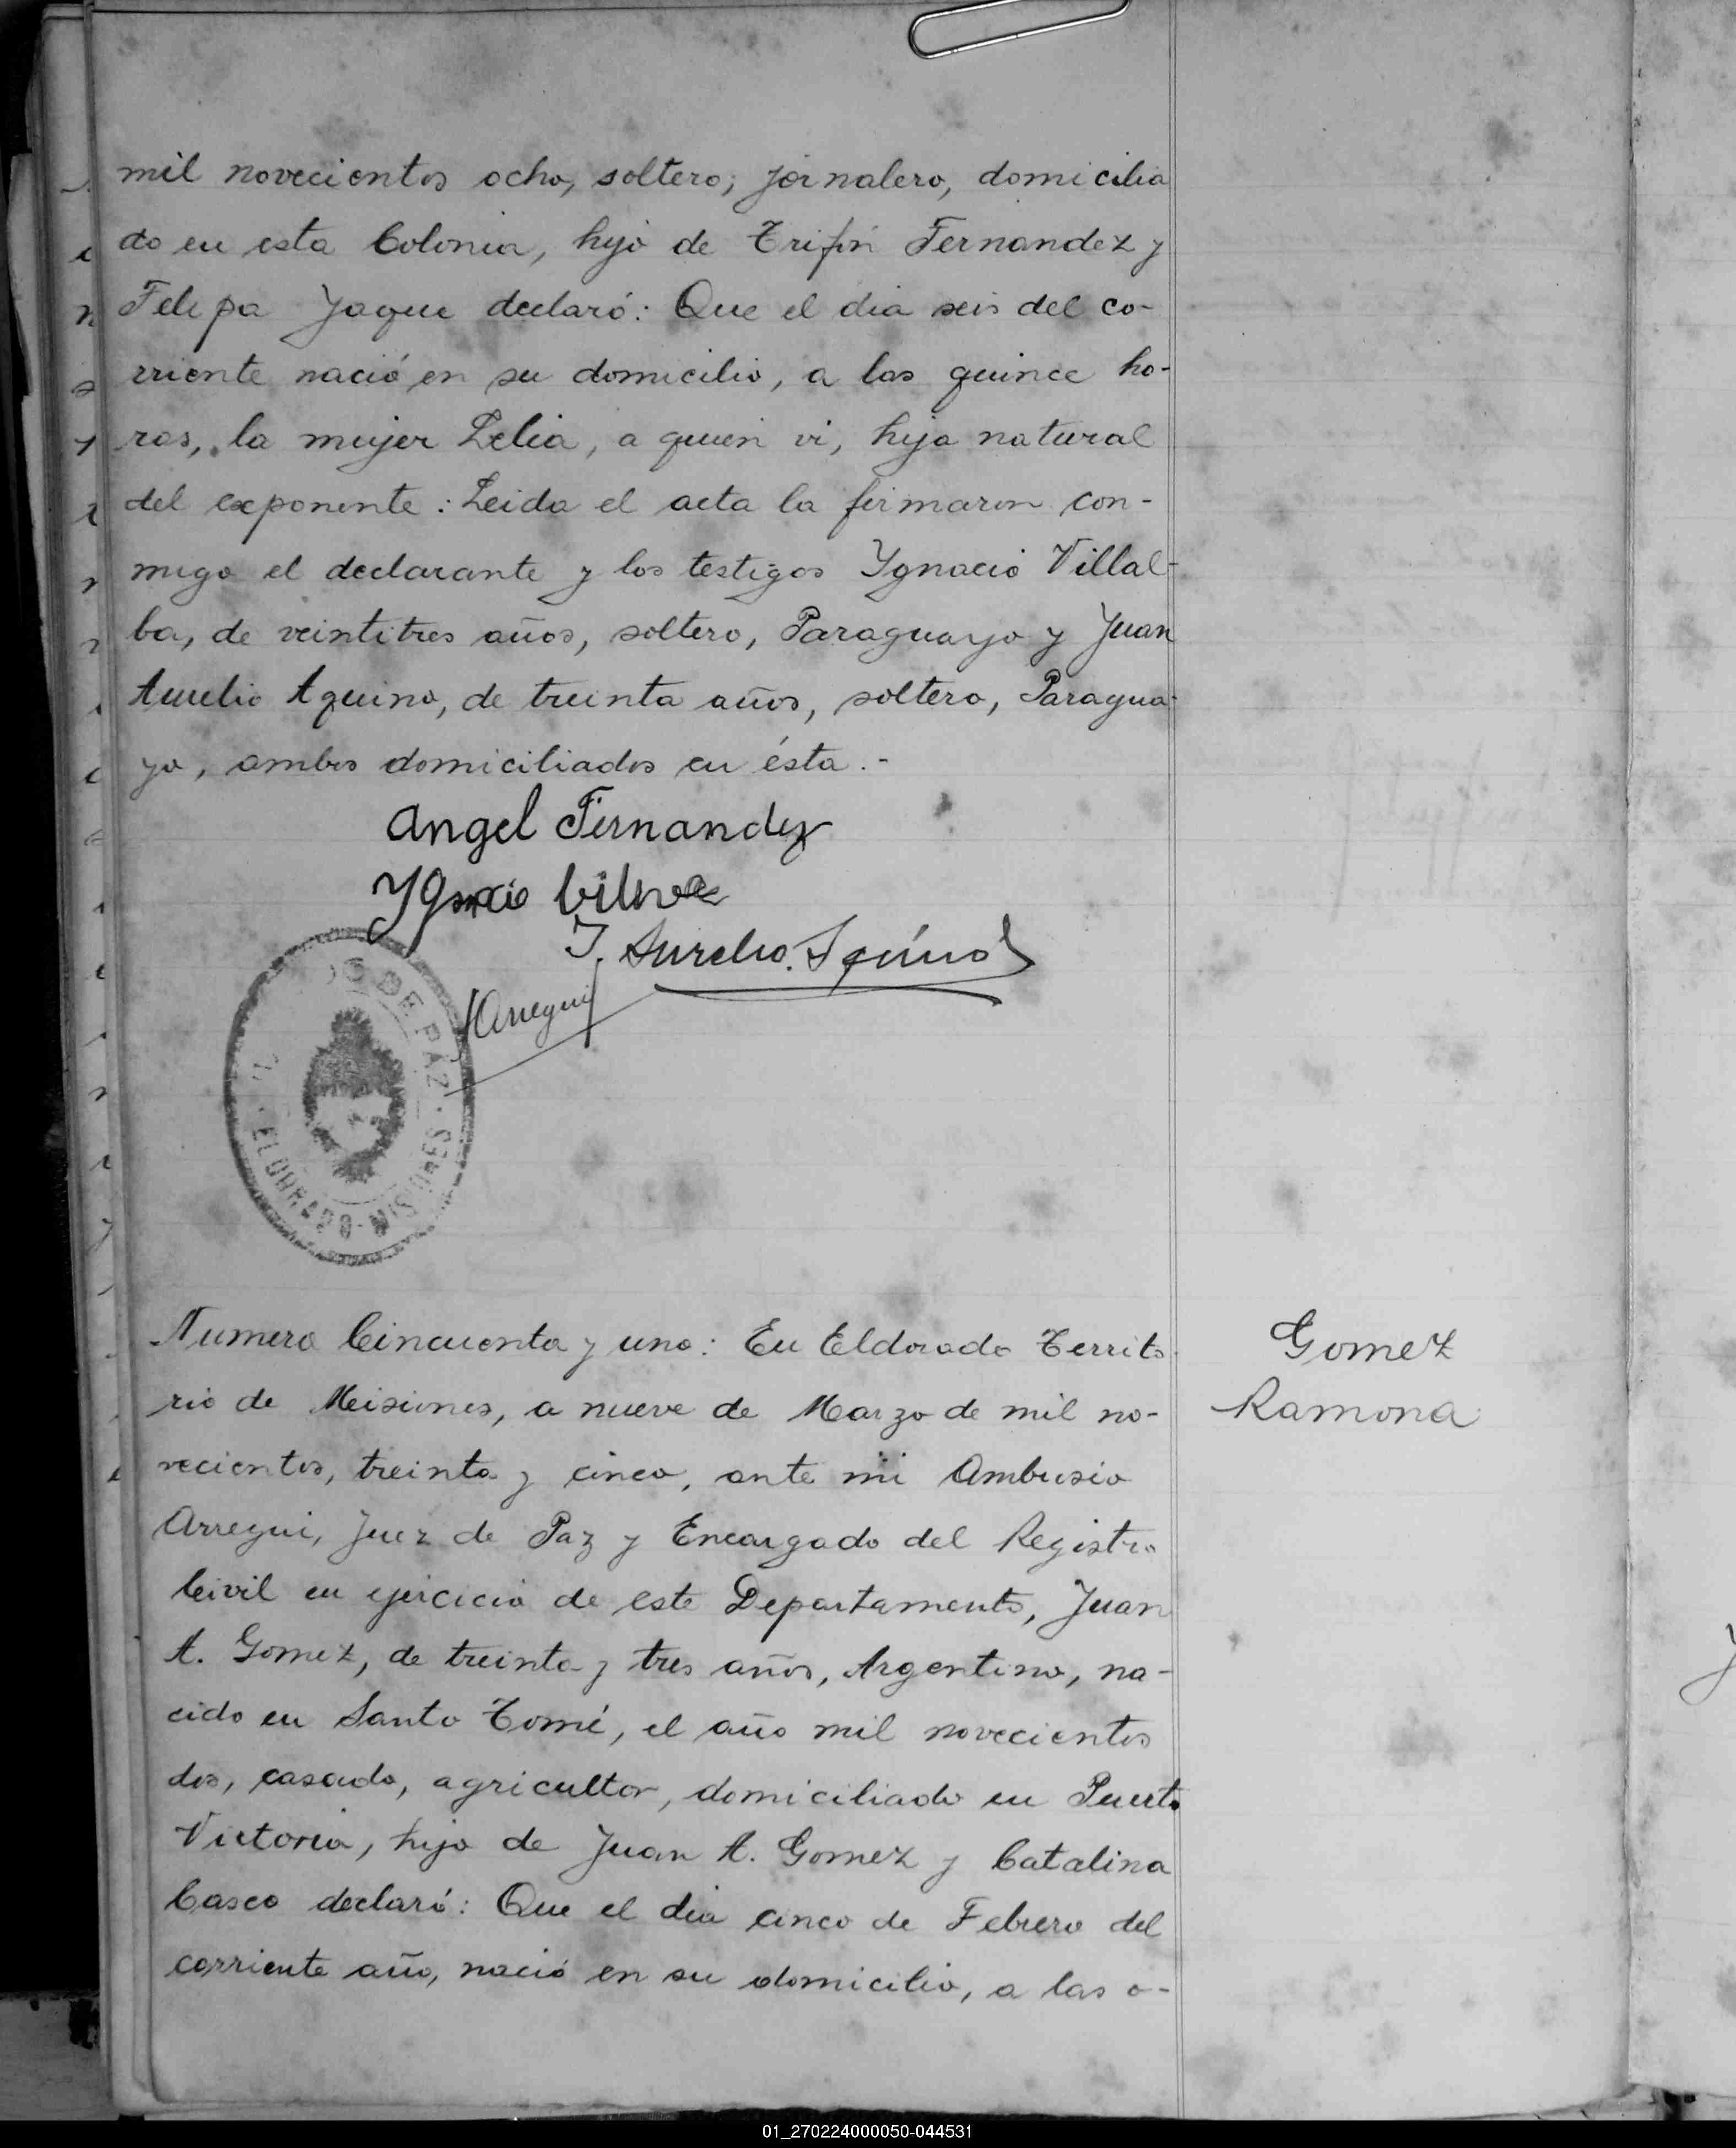 mil novecientos ocho, soltero, jornalero, domicilia
do en esta Colonia, hijo de Trifón Fernandez y
Felipa Yaque declaró: Que el dia seis del co-
rriente nació en su domicilio, a las quince ho-
ras, la mujer Lelia, a quien vi, hija natural
del exponente: Leida el acta la firmaron con-
migo el declarante y los testigos Ygnacio Villal-
ba, de veintitres años, soltero, Paraguayo y Juan
Aurelio Aquino, de treinta años, soltero, Paragua-
yo, ambos domiciliados en ésta.-
Angel Fernandez
Ygnacio
J. Aurelio Aquino
Arregui
DE PAZ
ELDORADO - MISIONES
Numero Cincuenta y uno: En Eldorado Territo
rio de Misiones, a nueve de Marzo de mil no-
vecientos, treinta y cinco, ante mi Ambrosio
Arregui, Juez de Paz y Encargado del Registro
Civil en ejercicio de este Departamento, Juan
A. Gomez, de treinta y tres años, Argentino, na-
cido en Santo Tomé, el año mil novecientos
dos, casado, agricultor, domiciliado en Puerto
Victoria, hijo de Juan A. Gomez y Catalina
Casco declaró: Que el dia cinco de Febrero del
corriente año, nació en su domicilio, a las o-
Gomez
Ramona
01_270224000050-044531